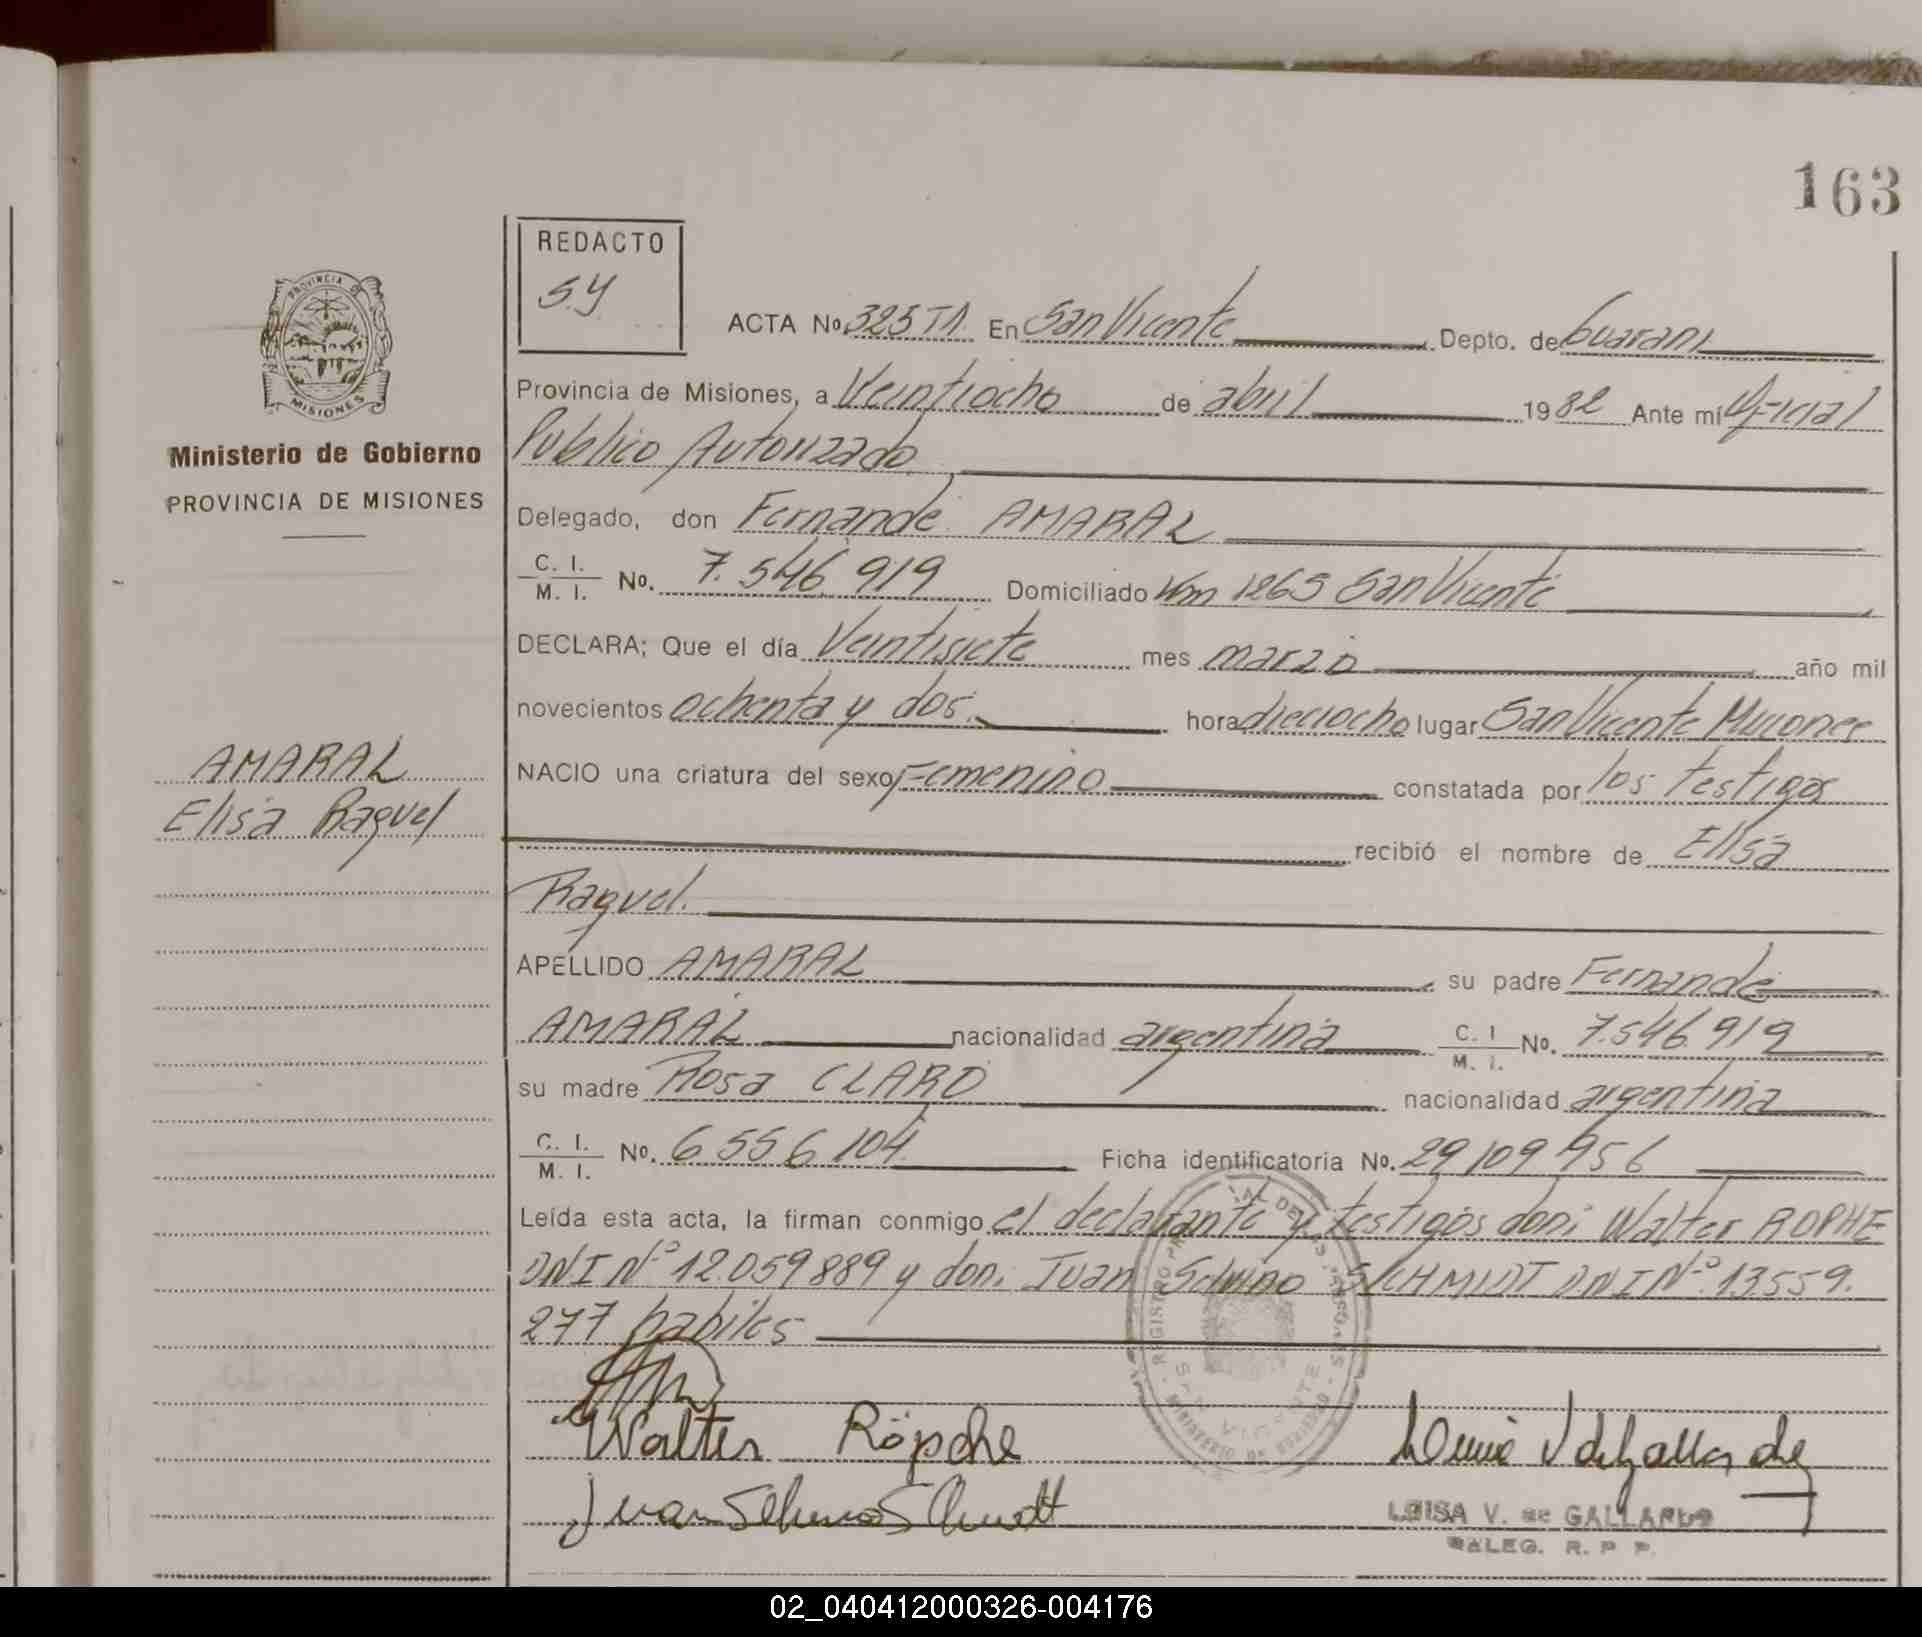 163
REDACTO
S.Y
PROVINCIA DE
MISIONES
Ministerio de Gobierno
PROVINCIA DE MISIONES
ACTA No. 325 T1. En San Vicente Depto. de Guarani
Provincia de Misiones, a Veintiocho de abril 1982 Ante mí Oficial
Publico Autorizado
Delegado, don Fernande AMARAL
C. I. / M. I. No. 7.546.919 Domiciliado Km 1265 San Vicente
DECLARA; Que el día Veintisiete mes marzo año mil
novecientos ochenta y dos. hora dieciocho lugar San Vicente Misiones
AMARAL
Elisa Raquel
NACIO una criatura del sexo Femenino constatada por los testigos
recibió el nombre de Elisa
Raquel.
APELLIDO AMARAL su padre Fernande
AMARAL nacionalidad argentina C. I / M. I. No. 7.546.919
su madre Rosa CLARO nacionalidad argentina
C. I. / M. I. No. 6556104 Ficha identificatoria No. 29109956
Leída esta acta, la firman conmigo el declarante y testigos don: Walter ROPHE
DNI Nº 12.059889 y don: Juan SCHMIDT DNI Nº 13.559.
277 habiles
Walter Röpche
Juan Schmidt
LUISA V. de GALLARDO
DELEG. R. P. P.
02_040412000326-004176